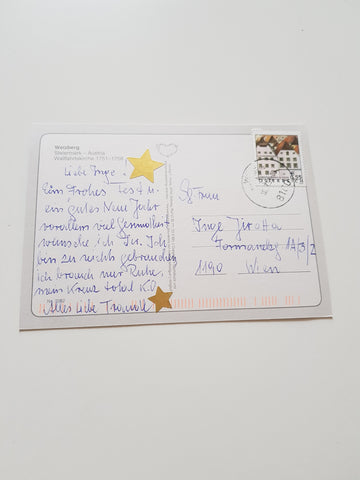 Weizberg
Steiermark - Austria
Wallfahrtskirche 1751-1758
Liebe Inge.
Ein Frohes Fest u.
ein gutes Neue Jahr
vorallem viel Gesundheit
wünsche ich Dir. Ich
bin zu nichts gebrauchen
ich brauch nur Ruhe,
mein Kreuz total K.O
Alles Liebe Traudl
Frau
Inge
1190 Wien